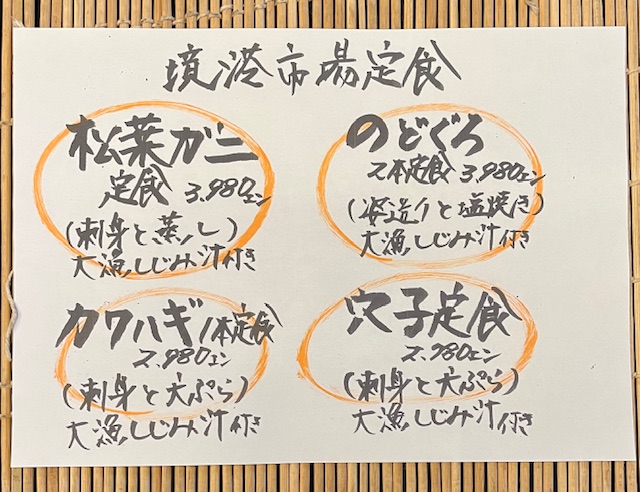 境港市場定食
松葉ガニ
定食 3.980エン
(刺身と蒸し)
大漁しじみ汁付き
のどぐろ
2本定食 3.980エン
(姿造りと塩焼き)
大漁しじみ汁付き
カワハギ1本定食
2.980エン
(刺身と天ぷら)
大漁しじみ汁付き
穴子定食
2.980エン
(刺身と天ぷら)
大漁しじみ汁付き